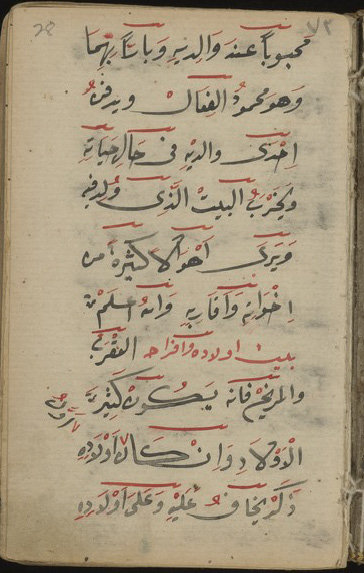 ٧٢ 28
محبوباً عند والديه وباتاً بهما
وهو محمود الفعال ويدفن
احدى والديه فى حال حياته
ويخرب البيت الذى ولد فيه
ويرى اهوالا كثيرة من
اخوانه واقاربه والله اعلم
بيت اولاده وافراحه العقرب
والمريخ فانه يكون كثير
الاولاد وان كان اولاده
ذكر يخاف عليه وعلى اولاده